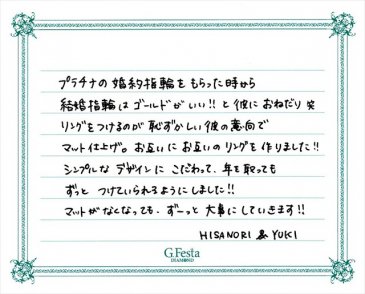 プラチナの婚約指輪をもらった時から
結婚指輪はゴールドがいい!! と彼におねだり 笑
リングをつけるのが恥ずかしい彼の意向で
マット仕上げ。お互いにお互いのリングを作りました!!
シンプルなデザインにこだわって、年を取っても
ずっとつけていられるようにしました!!
マットがなくなっても、ずーっと大事にしていきます!!
HISANORI & YUKI
G.Festa
DIAMOND